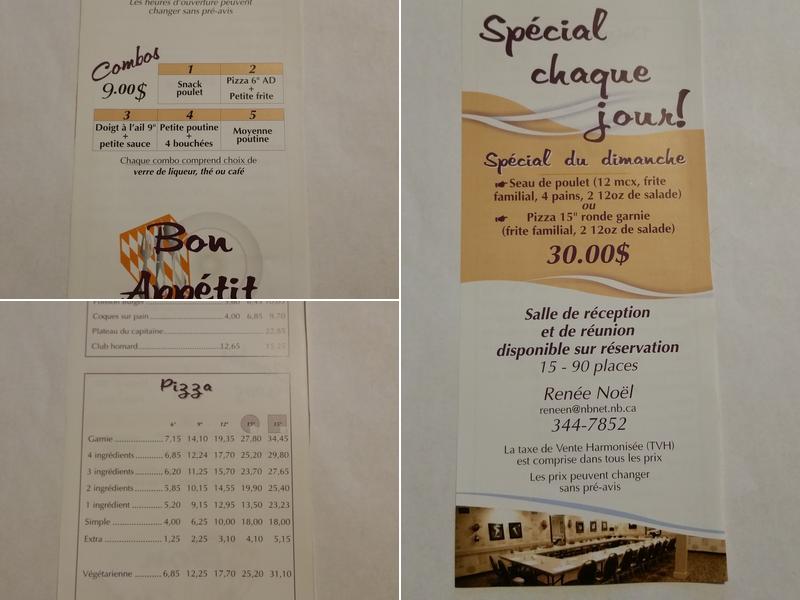 Les heures d'ouverture peuvent
changer sans pré-avis
Combos
9.00$
1
Snack
poulet
2
Pizza 6" AD
+
Petite frite
3
Doigt à l'ail 9"
+
petite sauce
4
Petite poutine
+
4 bouchées
5
Moyenne
poutine
Chaque combo comprend choix de
verre de liqueur, thé ou café
Bon
Appétit
Coques sur pain 4,00 6,85 9,70
Plateau du capitaine 22,85
Club homard 12,65 15,25
Pizza
6" 9" 12" 15" 15"
Garnie 7,15 14,10 19,35 27,80 34,45
4 ingrédients 6,85 12,24 17,70 25,20 29,80
3 ingrédients 6,20 11,25 15,70 23,70 27,65
2 ingrédients 5,85 10,15 14,55 19,90 25,40
1 ingrédient 5,20 9,15 12,95 13,50 23,23
Simple 4,00 6,25 10,00 18,00 18,00
Extra 1,25 2,25 3,10 4,10 5,15
Végétarienne 6,85 12,25 17,70 25,20 31,10
Spécial
chaque
jour!
Spécial du dimanche
Seau de poulet (12 mcx, frite
familial, 4 pains, 2 12oz de salade)
ou
Pizza 15" ronde garnie
(frite familial, 2 12oz de salade)
30.00$
Salle de réception
et de réunion
disponible sur réservation
15 - 90 places
Renée Noël
reneen@nbnet.nb.ca
344-7852
La taxe de Vente Harmonisée (TVH)
est comprise dans tous les prix
Les prix peuvent changer
sans pré-avis